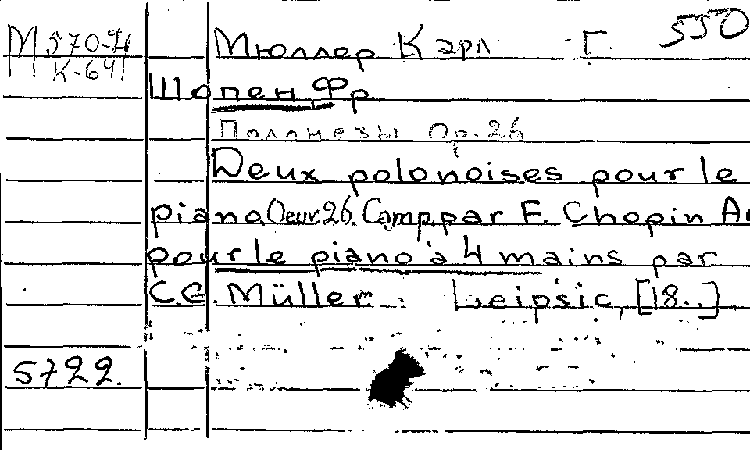 М 570-4 Мюллер Карл Г. 550
К-641
Шопен, Фр
Полонезы Op. 26
Deux polonoises pour le
piano Oeuv. 26. Comp par F. Chopin Ar
pour le piano à 4 mains par
C.G. Müller. Leipsic, [18..]
5722.